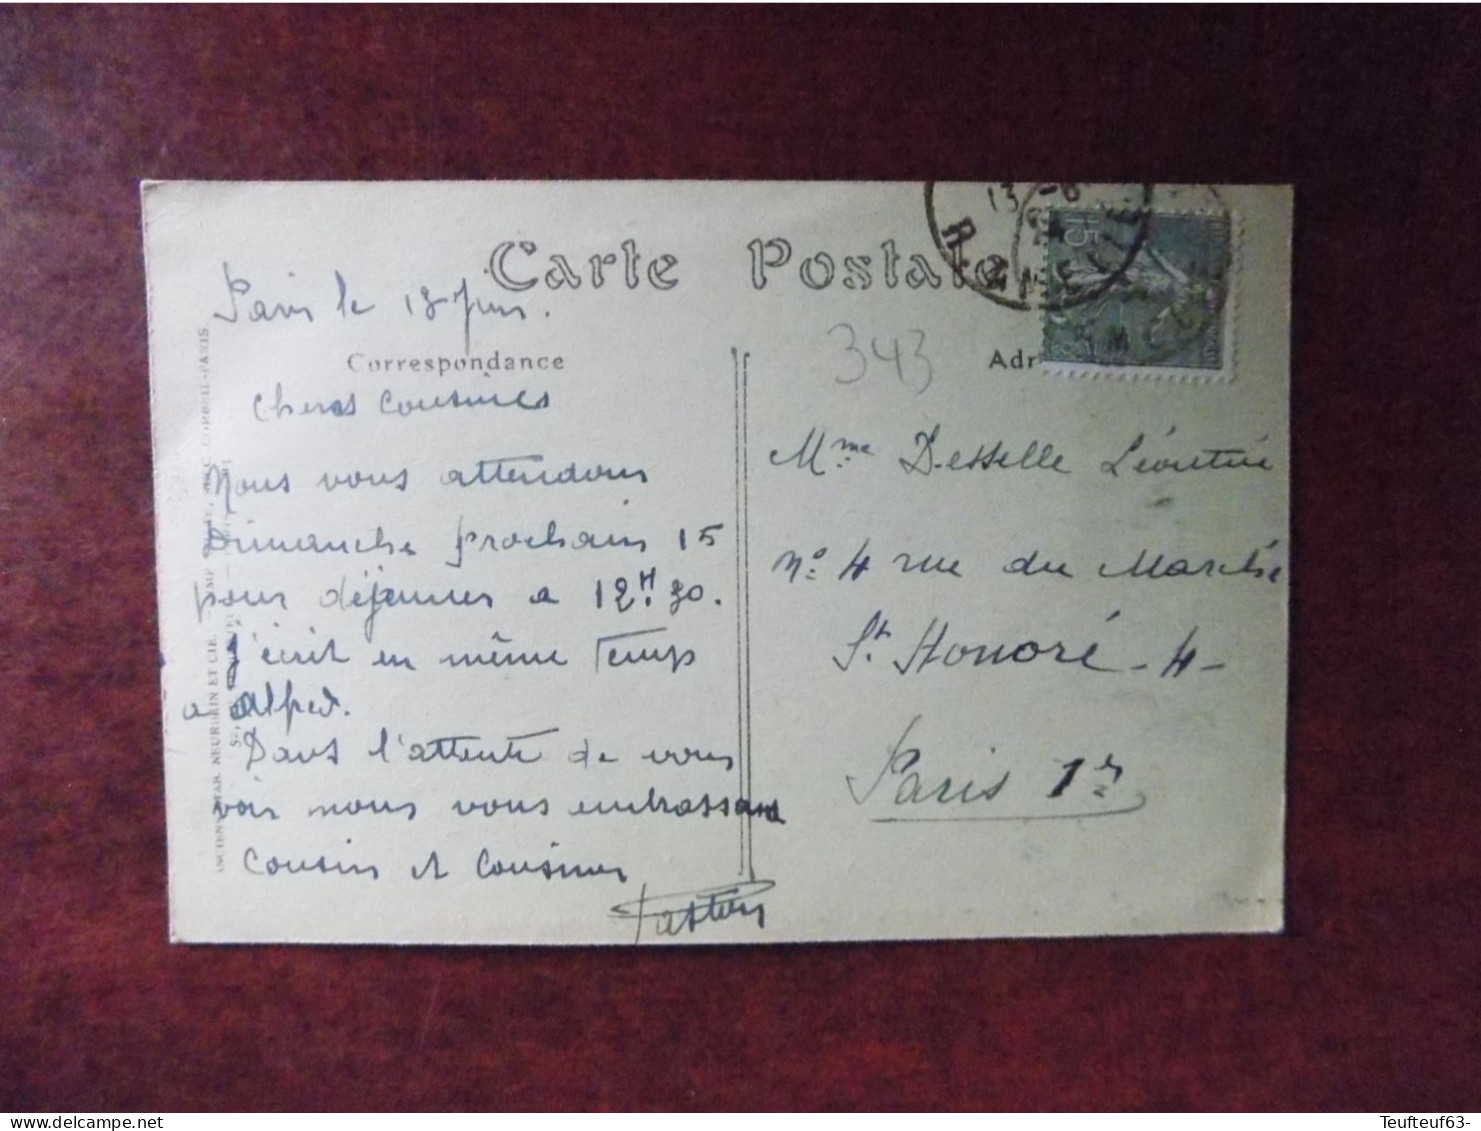 Carte Postale
13 -6
15
Paris le 13 Juin.
Correspondance
Adr
343
Cheres Cousines
Nous vous attendons
Dimanche prochain 15
pour déjeuner a 12H.30.
J'écrit en même temps
a Alfred.
Dans l'attente de vous
voir nous vous embrassons
Cousin et Cousines
Mme Desselle Léontine
No. 4 rue du Marché
St Honoré - 4 -
Paris 1er
ANCIENS ETAB. NEURDEIN ET CIE.
CORBEIL-PARIS
Teufteuf63-